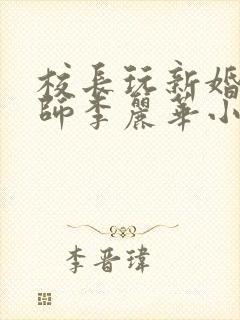 校長玩新婚
師李麗華小
李晋瑋